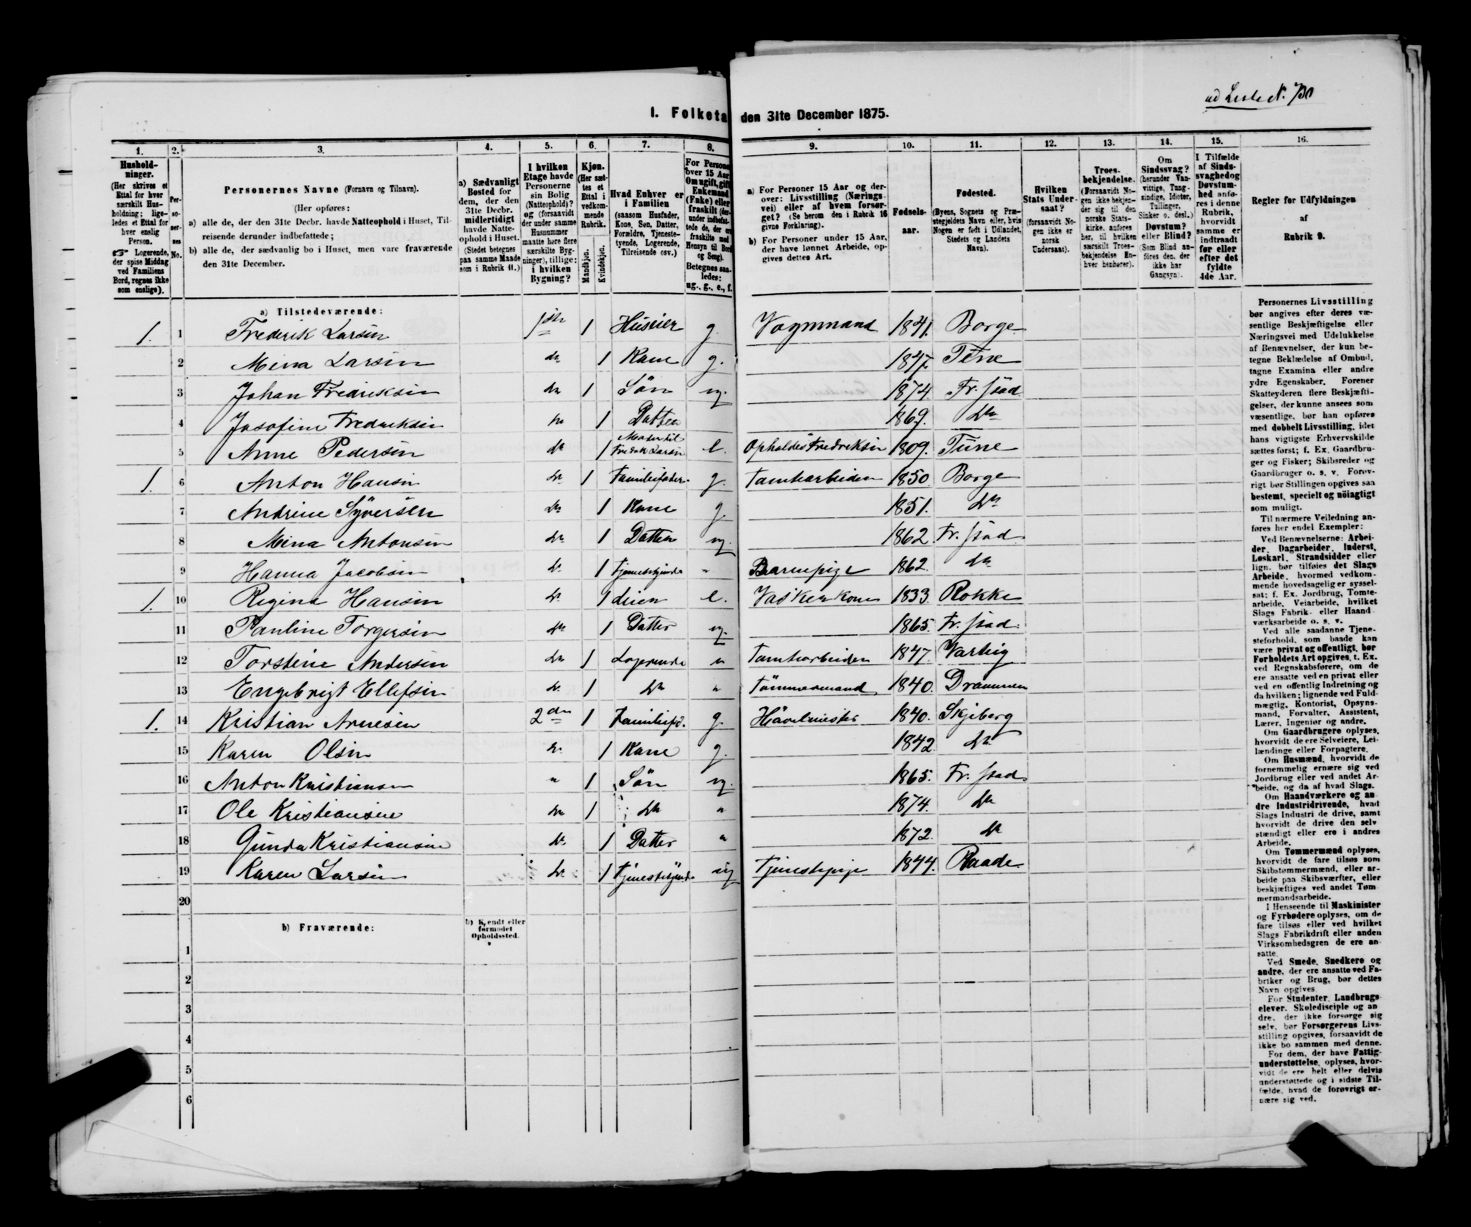 ad Liste Nr. 730
1. Folketa
den 31te December 1875.
1. 2. 3. 4. 5. 6. 7. 8. 9. 10. 11. 12. 13. 14. 15. 16.
Hushold-
ninger.
(Her skrives et
Ettal for hver
særskilt Hus-
holdning; lige-
ledes et Ettal for
hver enslig
Person.
☞ Logerende,
der spise Middag
ved Familiens
Bord, regnes ikke
som enslige).
Per-
so-
ner-
nes
No.
Personernes Navne (Fornavn og Tilnavn).
(Her opføres:
a) alle de, der den 31te Decbr. havde Natteophold i Huset, Til-
reisende derunder indbefattede;
b) alle de, der sædvanlig bo i Huset, men vare fraværende
den 31te December.
a) Sædvanligt
Bosted for
dem, der den
31te Decbr.
midlertidigt
havde Natte-
ophold i Huset.
(Stedet betegnes
paa samme Maade
som i Rubrik 11.)
I hvilken
Etage havde
Personerne
sin Bolig
(Natteophold)?
og (forsaavidt
der under samme
Husnummer
maatte høre flere
særskilte Byg-
ninger), tillige:
i hvilken
Bygning?
Kjøn.
(Her sæt-
tes et
Ettal i
vedkom-
mende
Rubrik.
Mandkjøn.
Kvindekjøn.
Hvad Enhver er
i Familien
(saasom Husfader,
Kone, Søn, Datter,
Forældre, Tjeneste-
tyende, Logerende,
Tilreisende osv.)
For Persone
over 15 Aar
Om ugift, gift
Enkemand
(Enke) eller
fraskilt
Betegnes saa-
ledes:
ug., g., e., f.
a) For Personer 15 Aar og der-
over: Livsstilling (Nærings-
vei) eller af hvem forsør-
get? (Se herom den i Rubrik 16
givne Forklaring).
b) For Personer under 15 Aar,
der have lønnet Arbeide, op-
gives dettes Art.
Fødsels-
aar.
Fødested.
(Byens, Sognets og Præ-
stegjeldets Navn eller, hvis
Nogen er født i Udlandet,
Stedets og Landets
Navn).
Hvilken
Stats Under-
saat?
(forsaavidt No-
gen ikke er
norsk
Undersaat).
Troes-
bekjendelse.
(Forsaavidt No-
gen ikke bekjen-
der sig til den
norske Stats-
kirke, anføres
her, til hvilken
særskilt Troes-
bekjendelse En-
hver henhører).
Om
Sindssvag?
(herunder Van-
vittige, Tung-
sindige, Idioter,
Tullinger,
Sinker o. desl.)
Døvstum?
eller Blind?
(Som Blind an-
føres den, der
ikke har
Gangsyn).
I Tilfælde
af Sinds-
svaghed og
Døvstum-
hed anfø-
res i denne
Rubrik,
hvorvidt
samme er
indtraadt
før eller
efter det
fyldte
4de Aar.
Regler for Udfyldningen
af
Rubrik 9.
a) Tilstedeværende:
1. 1 Frederik Larsen 1ste 1 Huseier g. Vognmand 1841. Borge
2 Mina Larsen do 1 Kone g. 1847. Tune
3 Johan Fredriksen do 1 Søn ug. 1874 Fr.stad
4 Josefine Fredriksen do 1 Datter 1869. do
5 Anne Pedersen do 1 Moder til Fredrik Larsen e. Opholdes Fredriksen 1809. Tune
1. 6 Anton Hansen do 1 Familiefader g. Tomtearbeider 1850. Borge
7 Andrine Syversen do 1 Kone g. 1851. do
8 Mina Antonsen do 1 Datter ug. 1862. Fr.stad
9 Hanna Jacobsen do 1 Tjenestepige " Barnepige 1862. do
1. 10 Regina Hansen do 1 e. Vaskerkone 1833. Rokke
11 Pauline Torgersen do 1 Datter ug. 1865. Fr.stad
12 Torstine Andersen do 1 Logerende " Tomtearbeider 1847. Varteig
13 Engebrigt Ellefsen do 1 do " Tømmermand 1840. Drammen
1. 14 Kristian Arnesen 2den 1 Familiefd. g. 1840. Skjeberg
15 Karen Olsen do 1 Kone g. 1842 do
16 Anton Kristiansen " 1 Søn ug. 1865. Fr.stad
17 Ole Kristiansen do 1 do " 1874. do
18 Gunda Kristiansen do 1 Datter " 1872. do
19 Karen Larsen do 1 ug Tjenestepige 1844. Raade
20
b) Fraværende:
b) Kjendt eller
formodet
Opholdssted.
1
2
3
4
5
6
Personernes Livsstilling
bør angives efter deres væ-
sentlige Beskjæftigelse eller
Næringsvei med Udelukkelse
af Benævnelser, der kun be-
tegne Beklædelse af Ombud,
tagne Examina eller andre
ydre Egenskaber. Forener
Skatteyderen flere Beskjæfti-
gelser, der kunne ansees som
væsentlige, bør han opføres
med dobbelt Livsstilling, idet
hans vigtigste Erhvervskilde
sættes først; f. Ex. Gaardbru-
ger og Fisker; Skibsreder og
Gaardbruger o. s. v. Forøv-
rigt bør Stillingen opgives saa
bestemt, specielt og nøiagtigt
som muligt.
Til nærmere Veiledning an-
føres her endel Exempler:
Ved Benævnelserne: Arbei-
der, Dagarbeider, Inderst,
Løskarl, Strandsidder eller
lign. bør tilføies det Slags
Arbeide, hvormed vedkom-
mende hovedsagelig er syssel-
sat; f. Ex. Jordbrug, Tomte-
arbeide, Veiarbeide, hvilket
Slags Fabrik- eller Haand-
værksarbeide o. s. v.
Ved alle saadanne Tjene-
steforhold, som baade kan
være privat og offentligt, bør
Forholdets Art opgives, t. Ex.
ved Regnskabsførere, om de
ere ansatte ved en privat eller
ved en offentlig Indretning og
da hvilken; lignende ved Fuld-
mægtig, Kontorist, Opsyns-
mand, Forvalter, Assistent,
Lærer, Ingeniør og andre.
Om Gaardbrugere oplyses,
hvorvidt de ere Selveiere, Lei-
lændinge eller Forpagtere.
Om Husmænd, hvorvidt de
fornemmelig ernære sig ved
Jordbrug eller ved andet Ar-
beide, og da af hvad Slags.
Om Haandværkere og an-
dre Industridrivende, hvad
Slags Industri de drive, samt
hvorvidt de drive den selv-
stændigt eller ere i andres
Arbeide.
Om Tømmermænd oplyses,
hvorvidt de fare tilsøs som
Skibstømmermænd, eller ar-
beide paa Skibsværfter, eller
beskjæftiges ved andet Tøm-
mermandsarbeide.
I Henseende til Maskinister
og Fyrbødere oplyses, om de
fare tilsøs eller ved hvilket
Slags Fabrikdrift eller anden
Virksomhedsgren de ere an-
satte.
Ved Smede, Snedkere og
andre, der ere ansatte ved Fa-
briker og Brug, bør dettes
Navn opgives.
For Studenter, Landbrugs-
elever, Skoledisciple og an-
dre, der ikke forsørge sig
selv, bør Forsørgerens Livs-
stilling opgives, forsaavidt de
ikke bo sammen med denne.
For dem, der have Fattig-
understøttelse, oplyses, hvor-
vidt de ere helt eller delvis
understøttede og i sidste Til-
fælde, hvad de forøvrigt er-
nære sig ved.